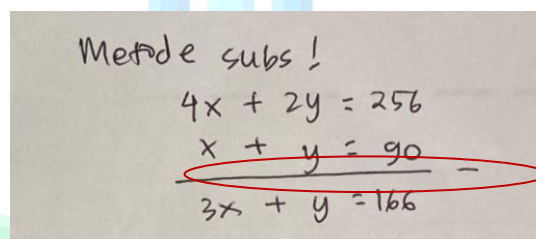 Metode subs!
4x + 2y = 256
x + y = 90
3x + y = 166